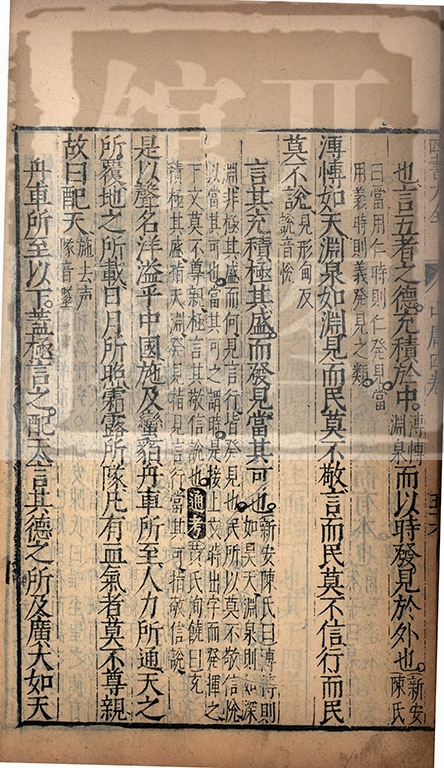 也言五者之德充積於中溥愽淵泉而以時發見於外也新安陳氏
曰當用仁時則仁發見當
用義時則義發見之類
溥愽如天淵泉如淵見而民莫不敬言而民莫不信行而民
莫不說見形甸反說音悅
言其充積極其盛而發見當其可也新安陳氏曰溥博則如昊天淵泉則如深
淵非極其盛而何見言行者發見也民所以莫不敬信悅
以當其可也當其可之謂時是接上文時出字而發揮之
下文莫不尊親極言其敬信說也通考黃氏洵饒曰充
積極其盛指天淵發見指見言行當其可指敬信說
是以聲名洋溢乎中國施及蠻貊舟車所至人力所通天之
所覆地之所載日月所照霜露所隊凡有血氣者莫不尊親
故曰配天施去聲隊音墜
舟車所至以下蓋極言之配天言其德之所及廣大如天